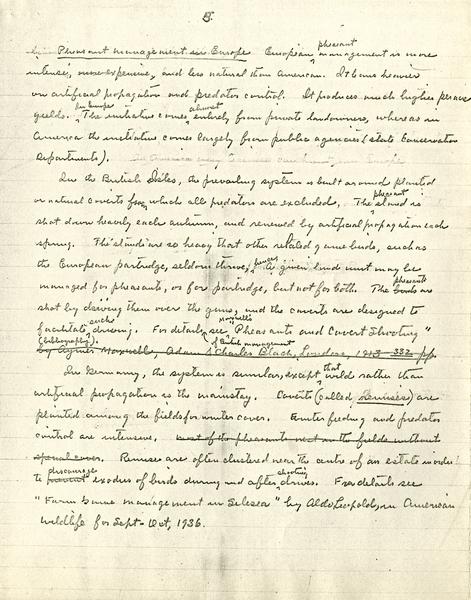 5.
Pheasant management in Europe European pheasant management is more
intense, more expensive, and less natural than American. It leans heavier
on artificial propagation and predator control. It produces much higher per acre
yields. In Europe The initiative comes almost entirely from private landowners, whereas in
America the initiative comes largely from public agencies (state Conservation
Departments).
In the British Isles, the prevailing system is built around planted
or natural coverts from which all predators are excluded. The pheasant stand is
shot down heavily each autumn, and renewed by artificial propagation each
spring. The stands are so heavy that other related game birds, such as
the European partridge, seldom thrive, hence a given land unit may be
managed for pheasants, or for partridge, but not for both. The pheasants are
shot by driving them over the guns, and the coverts are designed to
facilitate such driving. For details of British management see Maxwell's "Pheasants and Covert Shooting"
(bibliography). by Aymer Maxwell, Adam & Charles Black, London, 1913 332 pp.
In Germany, the system is similar, except that wild rather than
artificial propagation is the mainstay. Coverts (called Remises) are
planted among the fields for winter cover. Winter feeding and predator
control are intensive. most of the pheasants nest in the fields without
special cover. Remises are often clustered near the centre of an estate in order
to prevent discourage exodus of birds during and after shooting drives. For details see
"Farm Game management in Silesia" by Aldo Leopold, in American
Wildlife for Sept-Oct, 1936.